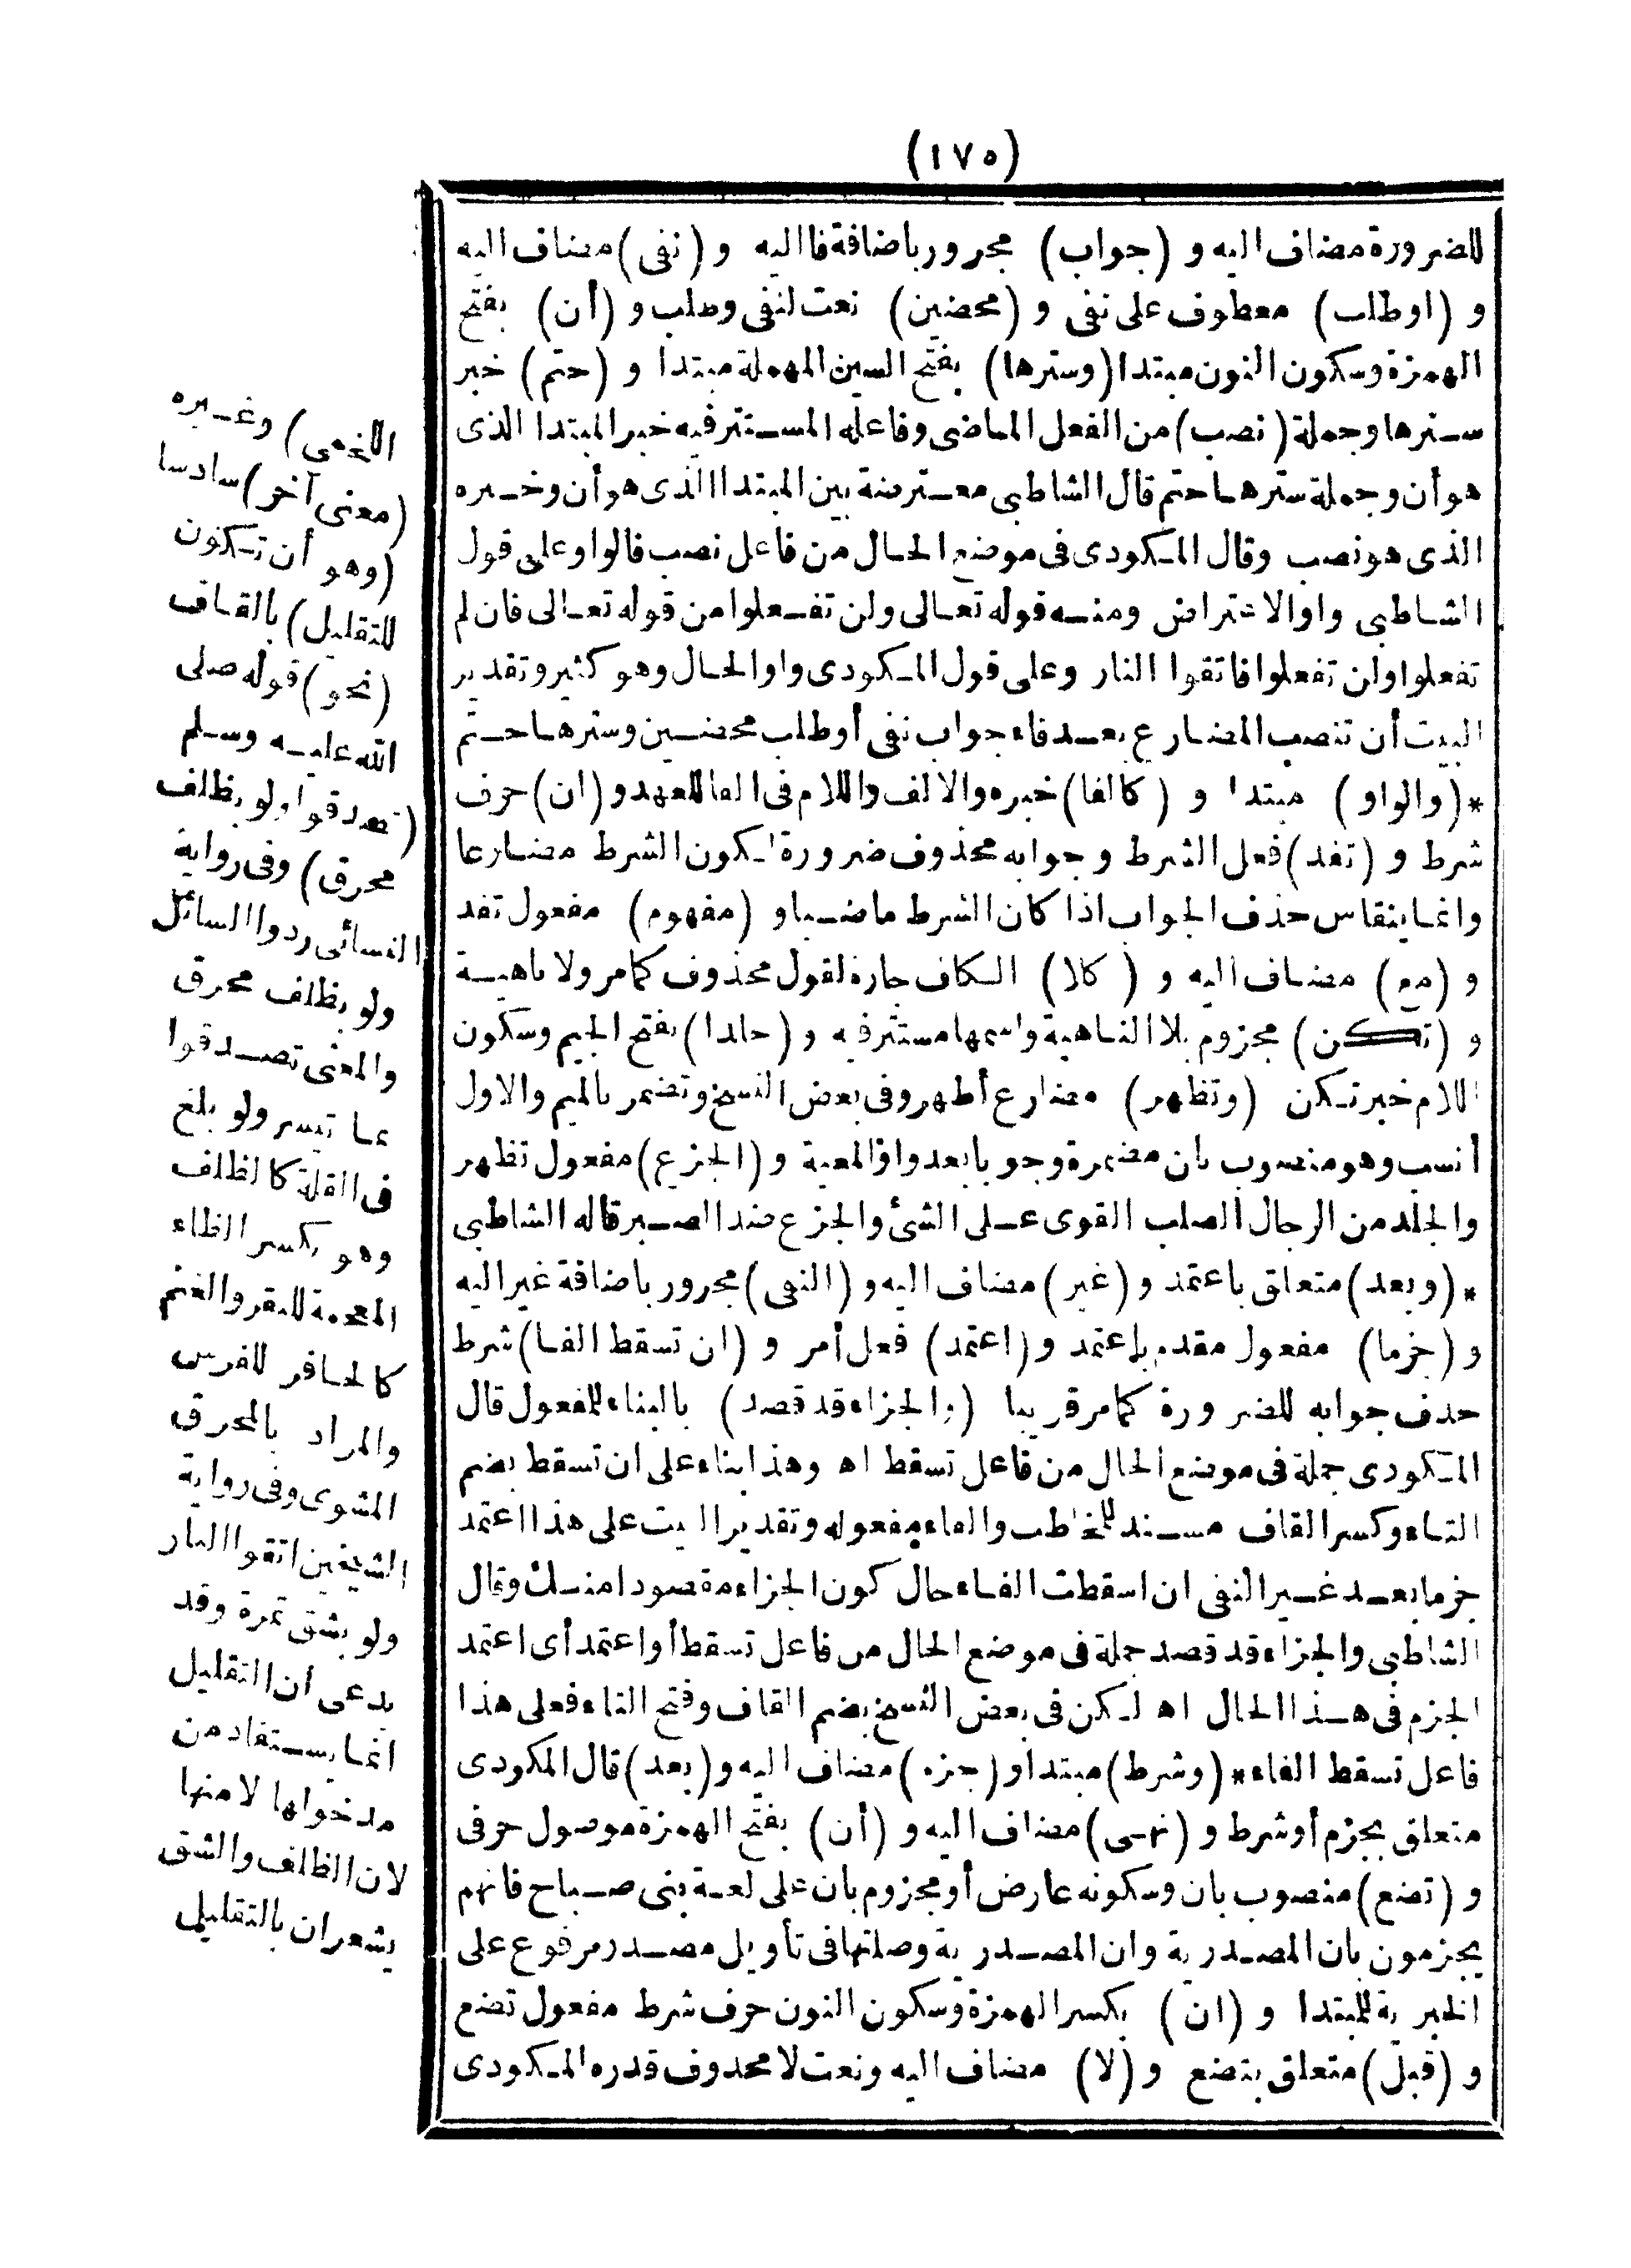 (١٧٥)
للضرورة مضاف اليه و (جواب) مجرور باضافة فا اليه و (نفى) مضاف اليه
و (اوطلب) معطوف على نفى و (محضين) نعت لنفى وطلب و (أن) بفتح
الهمزة وسكون النون مبتدا (وسترها) بفتح السين المهملة مبتدا و (حتم) خبر
سترها وجملة (نصب) من الفعل الماضى وفاعله المستتر فيه خبر المبتدا الذى
هو أن وجملة سترها حتم قال الشاطبى معترضة بين المبتدا الذى هو أن وخبره
الذى هو نصب وقال المكودى فى موضع الحال من فاعل نصب فالواو على قول
الشاطبى واو الاعتراض ومنه قوله تعالى ولن تفعلوا من قوله تعالى فان لم
تفعلوا ولن تفعلوا فاتقوا النار وعلى قول المكودى واو الحال وهو كثير وتقدير
البيت أن تنصب المضارع بعد فاء جواب نفى أو طلب محضين وسترها حتم
* (والواو) مبتدا و (كالفا) خبره والالف واللام فى الفا للعهد و (ان) حرف
شرط و (تفد) فعل الشرط وجوابه محذوف ضرورة لكون الشرط مضارعا
وانما ينقاس حذف الجواب اذا كان الشرط ماضيا و (مفهوم) مفعول تفد
و (مع) مضاف اليه و (كلا) الكاف جارة لقول محذوف كما مر ولا ناهية
و (تكن) مجزوم بلا الناهية واسمها مستتر فيه و (جلدا) بفتح الجيم وسكون
اللام خبر تكن (وتظهر) مضارع أظهر وفى بعض النسخ وتضمر بالميم والاول
أنسب وهو منصوب بان مضمرة وجوبا بعد واو المعية و (الجزع) مفعول تظهر
والجلد من الرجال الصلب القوى على الشئ والجزع ضد الصبر قاله الشاطبى
* (وبعد) متعلق باعتمد و (غير) مضاف اليه و (النفى) مجرور باضافة غير اليه
و (جزما) مفعول مقدم باعتمد و (اعتمد) فعل أمر و (ان تسقط الفا) شرط
حذف جوابه للضرورة كما مر قريبا (والجزاء قد قصد) بالبناء للمفعول قال
المكودى جملة فى موضع الحال من فاعل تسقط اه وهذا بناء على ان تسقط بضم
التاء وكسر القاف مسند للمخاطب والفاء مفعوله وتقدير البيت على هذا اعتمد
جزما بعد غير النفى ان اسقطت الفاء حال كون الجزاء مقصودا منك وقال
الشاطبى والجزاء قد قصد جملة فى موضع الحال من فاعل تسقط أو اعتمد أى اعتمد
الجزم فى هذا الحال اه لكن فى بعض النسخ بضم القاف وفتح التاء فعلى هذا
فاعل تسقط الفاء * (وشرط) مبتدا و (جزم) مضاف اليه و (بعد) قال المكودى
متعلق بجزم أو شرط و (نهى) مضاف اليه و (أن) بفتح الهمزة موصول حرفى
و (تضع) منصوب بان وسكونه عارض أو مجزوم بان على لغة بنى صباح فانهم
يجزمون بان المصدرية وان المصدرية وصلتها فى تأويل مصدر مرفوع على
الخبرية للمبتدا و (ان) بكسر الهمزة وسكون النون حرف شرط مفعول تضع
و (قبل) متعلق بتضع و (لا) مضاف اليه ونعت لا محذوف قدره المكودى
اللخمى) وغيره
(معنى آخر) سادسا
(وهو أن تكون
للتقليل) بالقاف
(نحو) قوله صلى
الله عليه وسلم
(تصدقوا ولو بظلف
محرق) وفى رواية
النسائى ردوا السائل
ولو بظلف محرق
والمعنى تصدقوا
بما تيسر ولو بلغ
فى القلة كالظلف
وهو بكسر الظاء
المعجمة للبقر والغنم
كالحافر للفرس
والمراد بالمحرق
المشوى وفى رواية
الشيخين اتقوا النار
ولو بشق تمرة وقد
يدعى ان التقليل
انما يستفاد من
مدخولها لا منها
لان الظلف والشق
يشعران بالتقليل